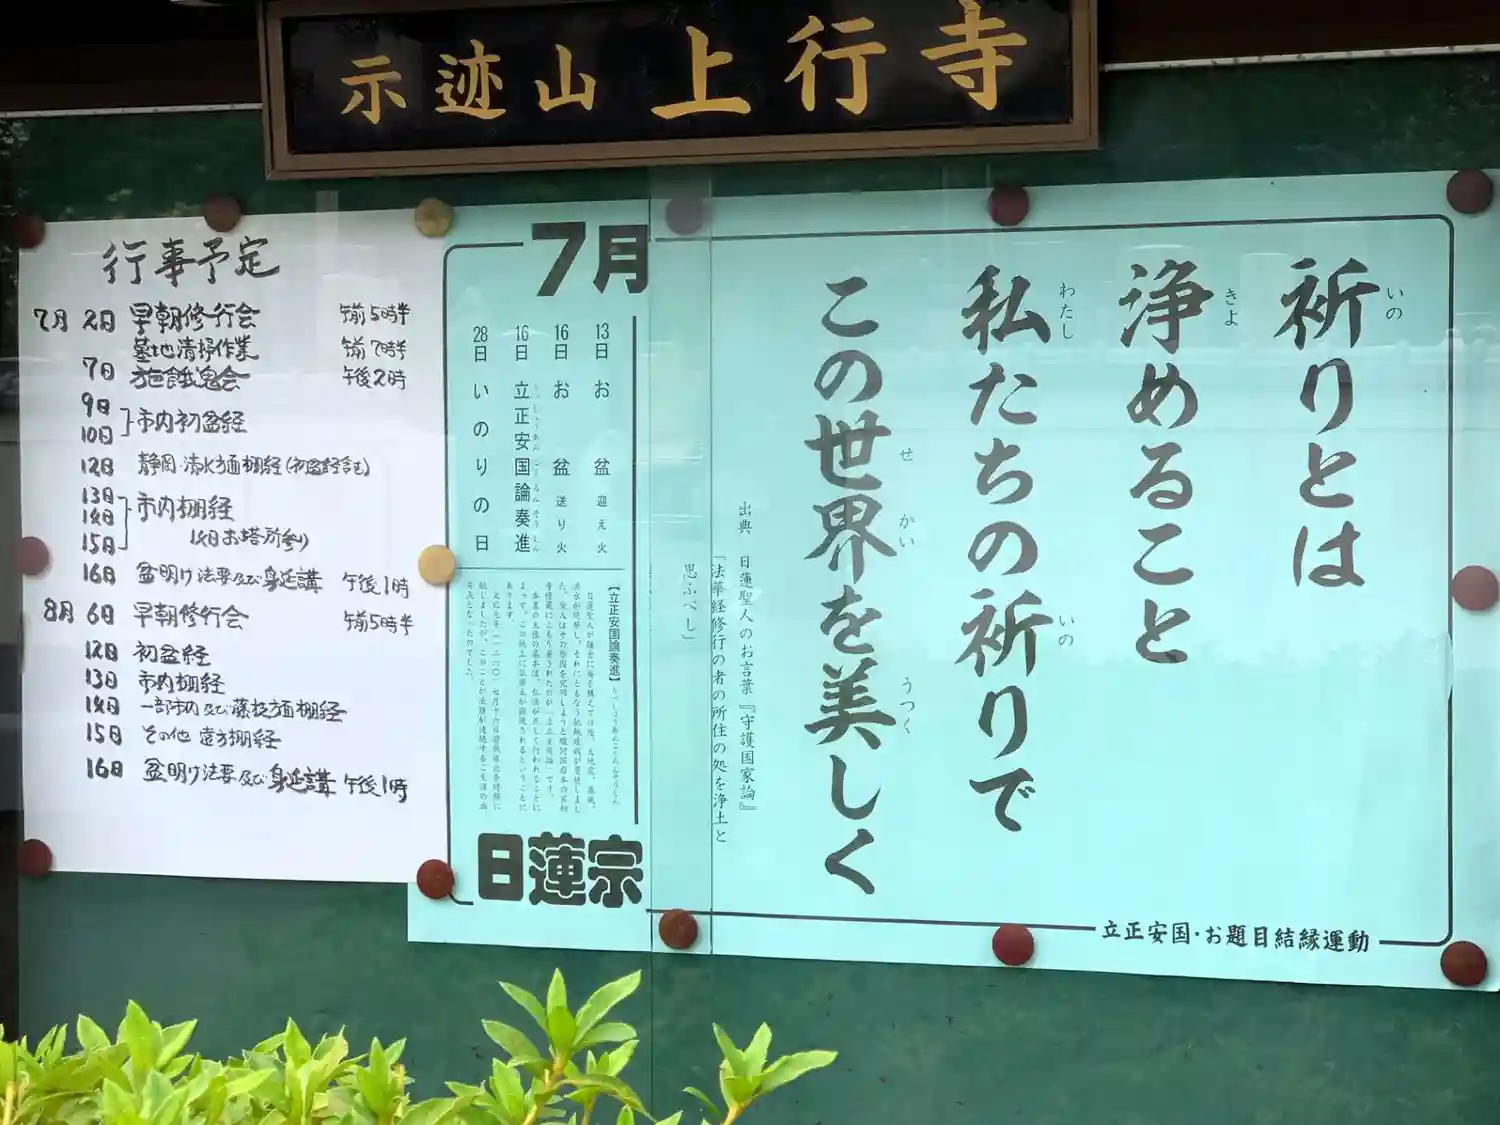 示迹山 上行寺
行事予定
7月 2日 早朝修行会 午前5時半
墓地清掃作業 午前7時半
7日 施餓鬼会 午後2時
9日
10日 市内初盆経
12日 静岡・清水方面棚経(初盆経含む)
13日
14日 市内棚経
15日 14日お塔所参り
16日 盆明け法要及び身延講 午後1時
8月 6日 早朝修行会 午前5時半
12日 初盆経
13日 市内棚経
14日 一部市内及び藤枝方面棚経
15日 その他 遠方棚経
16日 盆明け法要及び身延講 午後1時
祈りとは
いの
浄めること
きよ
私たちの祈りで
わたし
いの
この世界を美しく
せ
かい
うつく
出典 日蓮聖人のお言葉『守護国家論』
「法華経修行の者の所住の処を浄土と
思ふべし」
7月
13日 お盆 迎え火
16日 お盆 送り火
16日 立正安国論奏進
りっしょうあんこくろんそうしん
28日 いのりの日
【立正安国論奏進】
日蓮宗
立正安国・お題目結縁運動